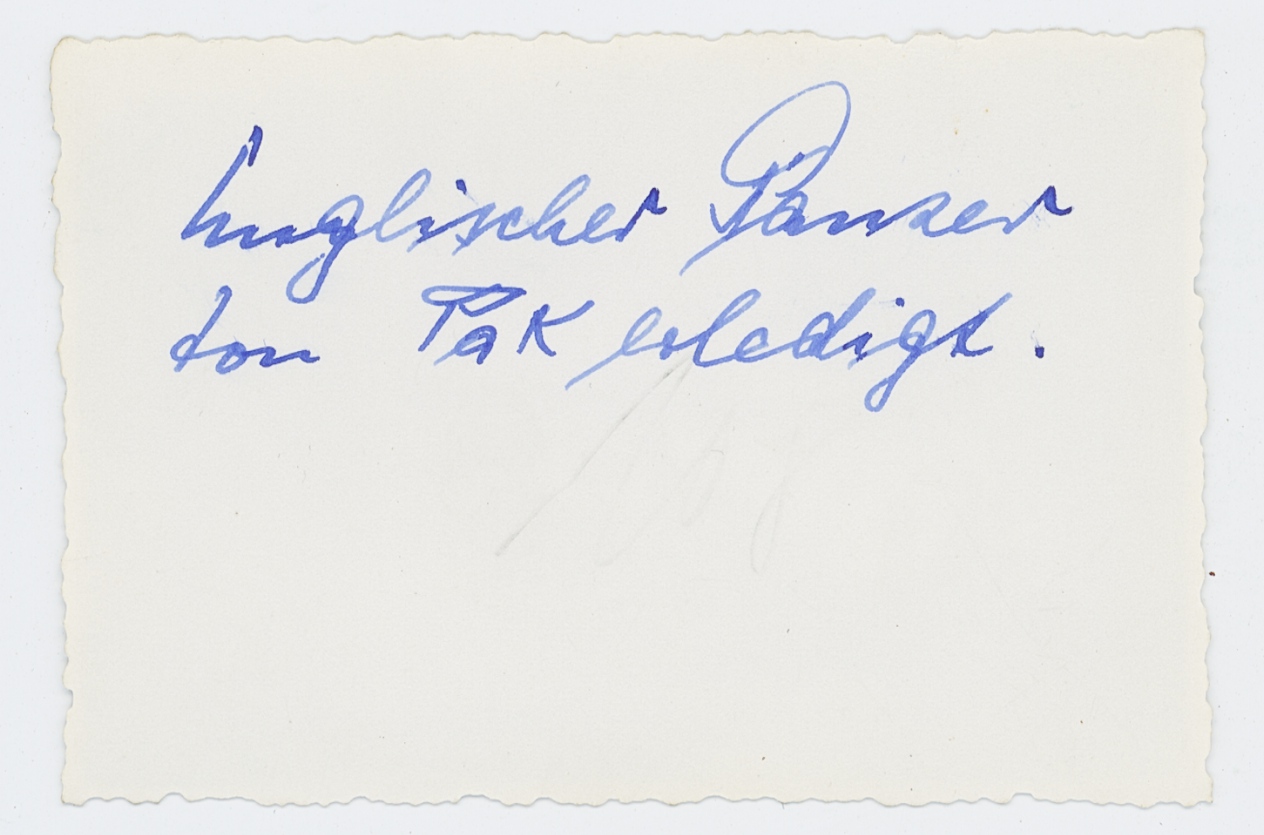 Englischer Panzer
von Pak erledigt.